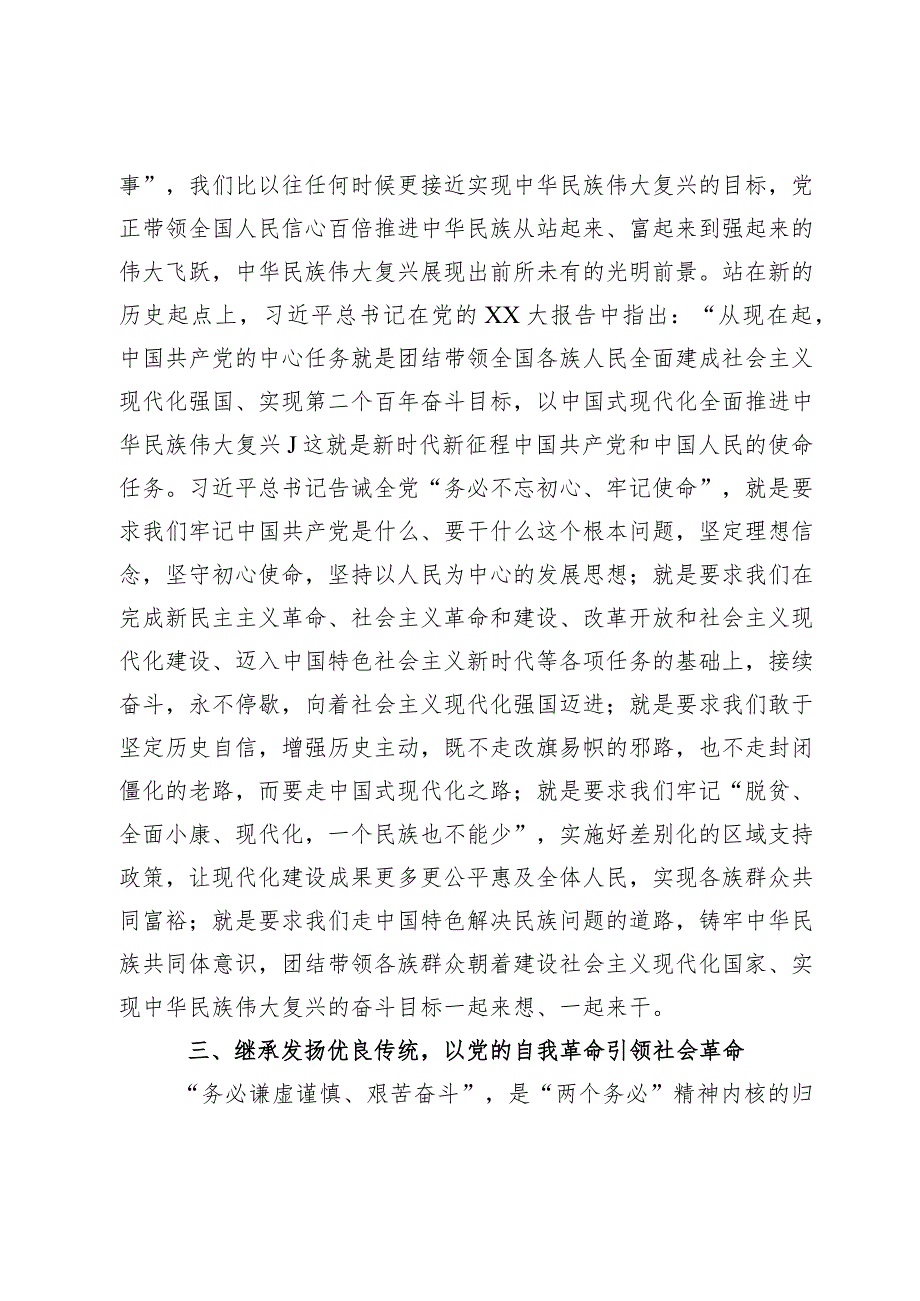 事”，我们比以往任何时候更接近实现中华民族伟大复兴的目标，党
正带领全国人民信心百倍推进中华民族从站起来、富起来到强起来的
伟大飞跃，中华民族伟大复兴展现出前所未有的光明前景。站在新的
历史起点上，习近平总书记在党的 XX 大报告中指出：“从现在起，
中国共产党的中心任务就是团结带领全国各族人民全面建成社会主义
现代化强国、实现第二个百年奋斗目标，以中国式现代化全面推进中
华民族伟大复兴 J 这就是新时代新征程中国共产党和中国人民的使命
任务。习近平总书记告诫全党“务必不忘初心、牢记使命”，就是要
求我们牢记中国共产党是什么、要干什么这个根本问题，坚定理想信
念，坚守初心使命，坚持以人民为中心的发展思想；就是要求我们在
完成新民主主义革命、社会主义革命和建设、改革开放和社会主义现
代化建设、迈入中国特色社会主义新时代等各项任务的基础上，接续
奋斗，永不停歇，向着社会主义现代化强国迈进；就是要求我们敢于
坚定历史自信，增强历史主动，既不走改旗易帜的邪路，也不走封闭
僵化的老路，而要走中国式现代化之路；就是要求我们牢记“脱贫、
全面小康、现代化，一个民族也不能少”，实施好差别化的区域支持
政策，让现代化建设成果更多更公平惠及全体人民，实现各族群众共
同富裕；就是要求我们走中国特色解决民族问题的道路，铸牢中华民
族共同体意识，团结带领各族群众朝着建设社会主义现代化国家、实
现中华民族伟大复兴的奋斗目标一起来想、一起来干。
三、继承发扬优良传统，以党的自我革命引领社会革命
“务必谦虚谨慎、艰苦奋斗”，是“两个务必”精神内核的归